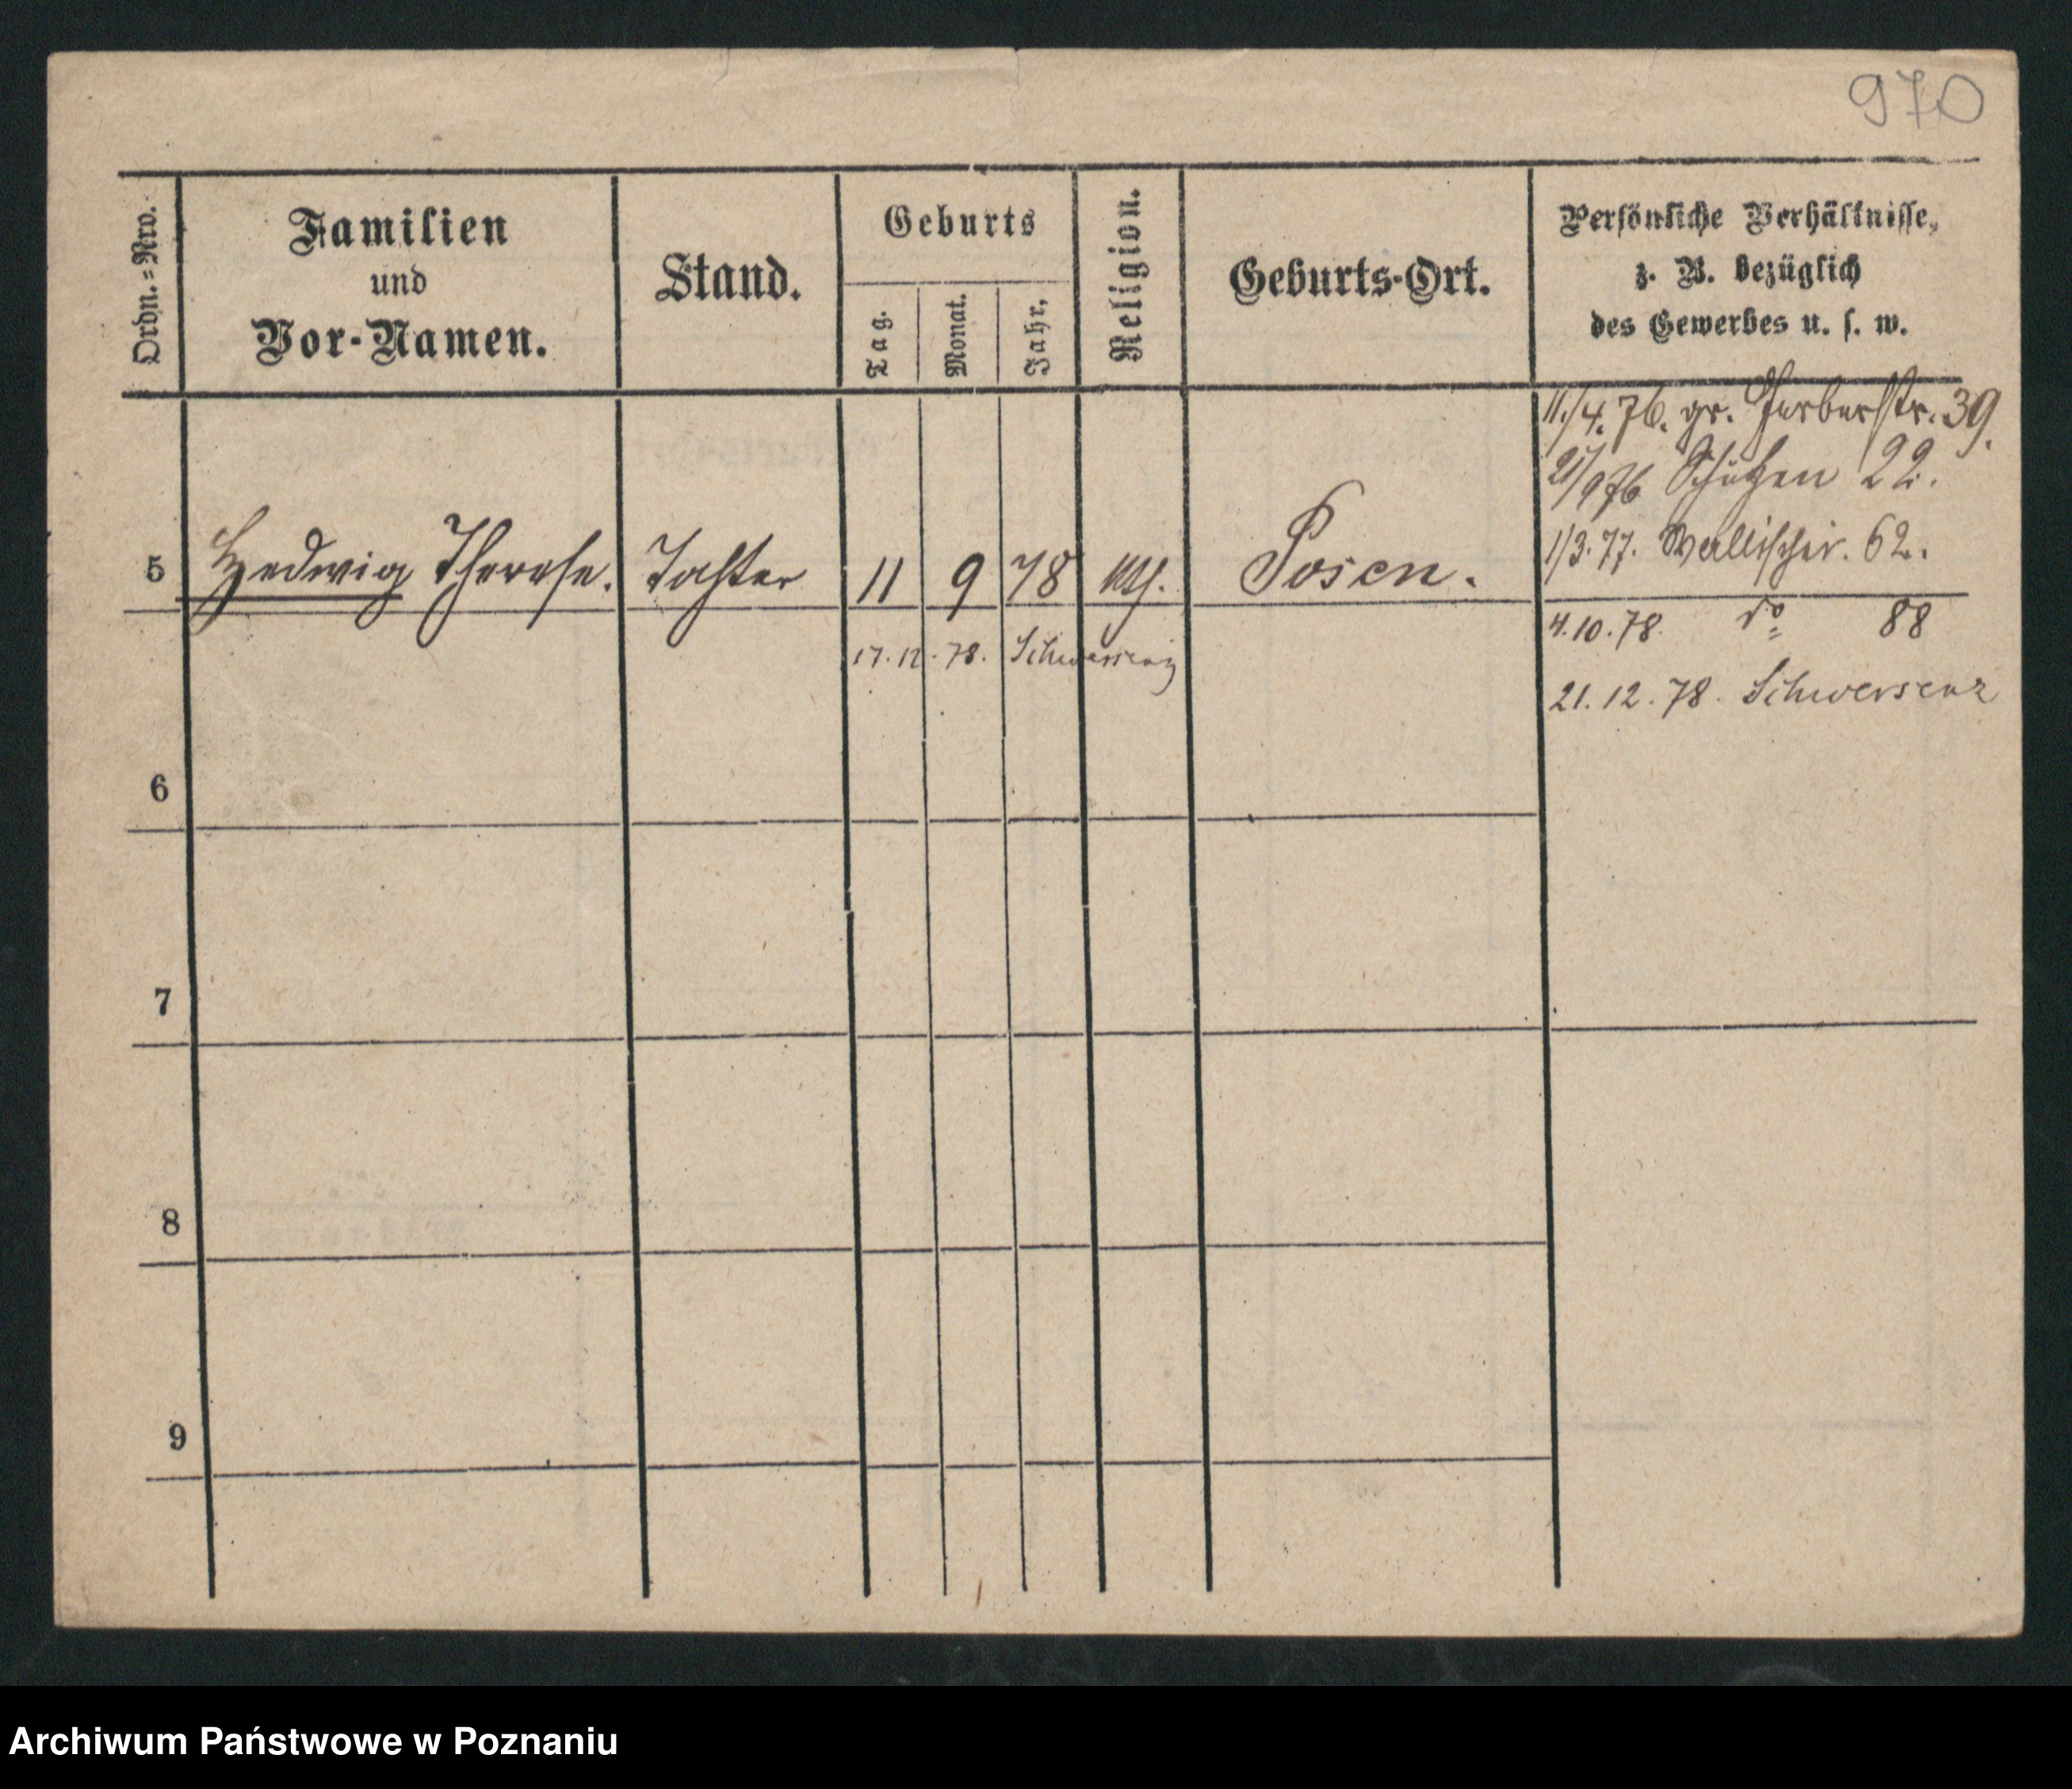 970
Ordn.-Nro.
Familien
und
Vor-Namen.
Stand.
Geburts
Tag.
Monat.
Jahr.
Religion.
Geburts-Ort.
Persönliche Verhältnisse,
z. B. bezüglich
des Gewerbes u. s. w.
11./4.76. gr. Gerberstr. 39.
21/976 Schützen 22.
1/3.77. Wallischei. 62.
5 Hedwig Therese. Tochter 11 9 78 Posen.
4.10.78. do 88
17.12.78. Schwersenz
21.12.78. Schwersenz
6
7
8
9
Archiwum Państwowe w Poznaniu